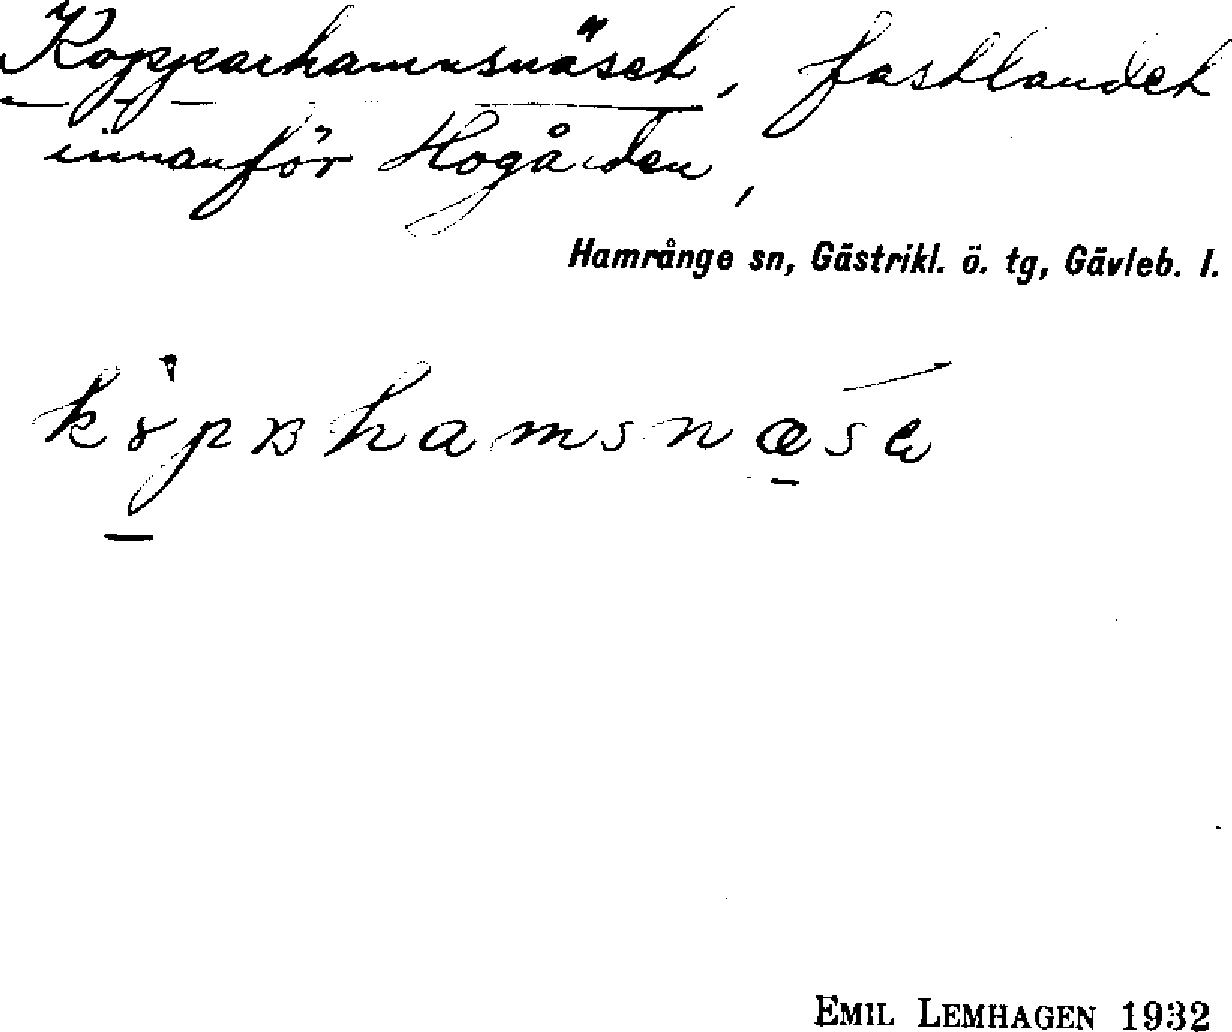 Kopparhamnsnäset, fastlandet
innanför Hogården,
Hamrånge sn, Gästrikl. ö. tg, Gävleb. l.
EMIL LEMHAGEN 1932